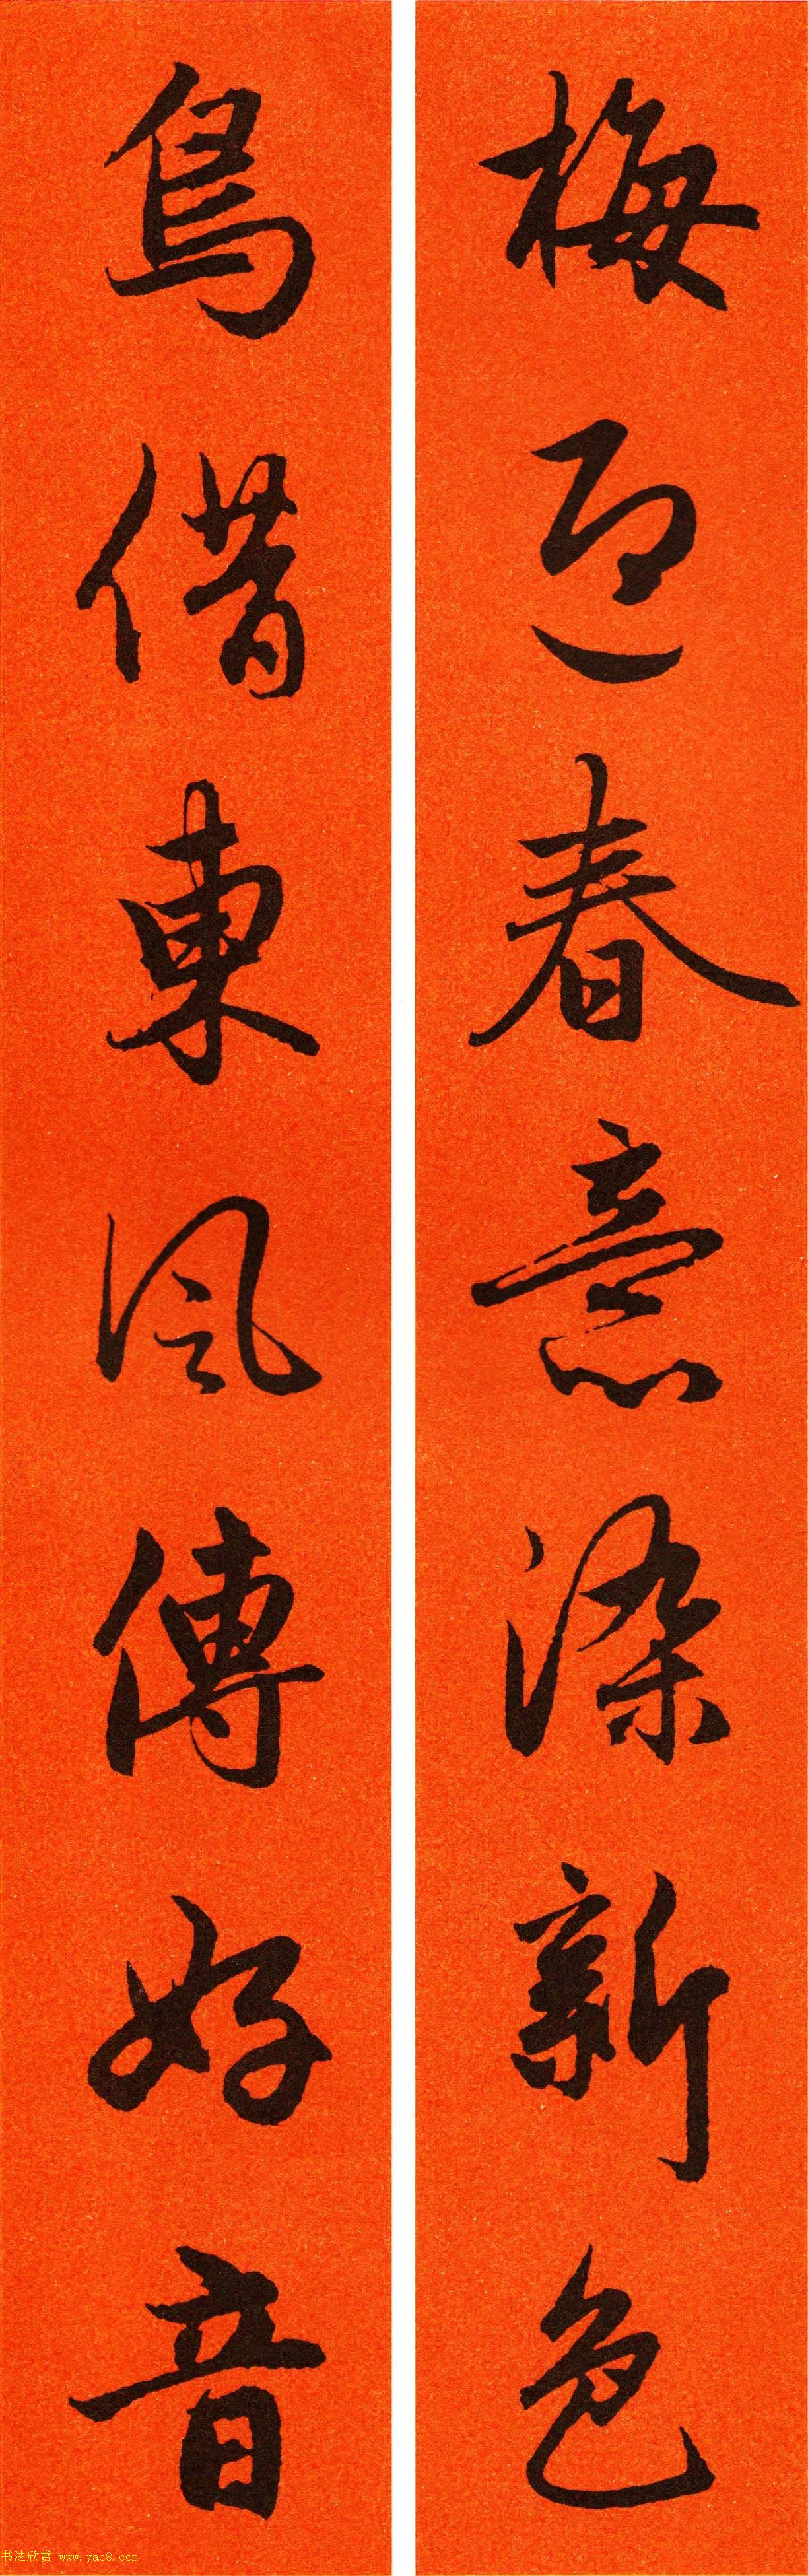 梅迎春意染新色
鳥借東風傳好音
书法欣赏 www.yac8.com